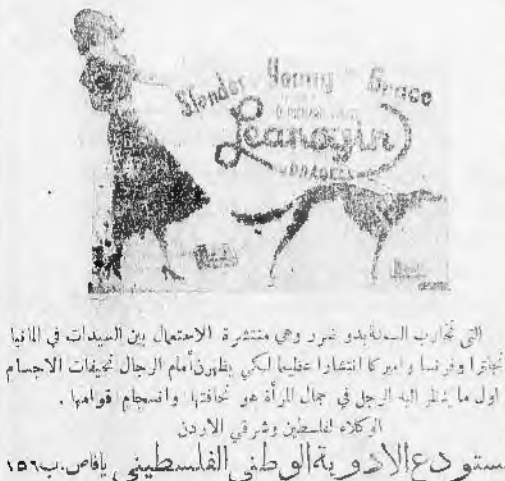 Slender Young Grace
Leanogin
DRAGEES
التي تحارب السمنة بدو ضرر وهي منتشرة الاستعمال بين السيدات في المانيا
نجلترا وفرنسا واميركا انتشارا عظيما لكي يظهرن أمام الرجال نحيفات الاجسام
اول ما ينظر اليه الرجل في جمال المرأة هو نحافتها وانسجام قوامها .
الوكلاء لفلسطين وشرقي الاردن
ستودع الادوية الوطني الفلسطيني يافا ص.ب ١٥٦